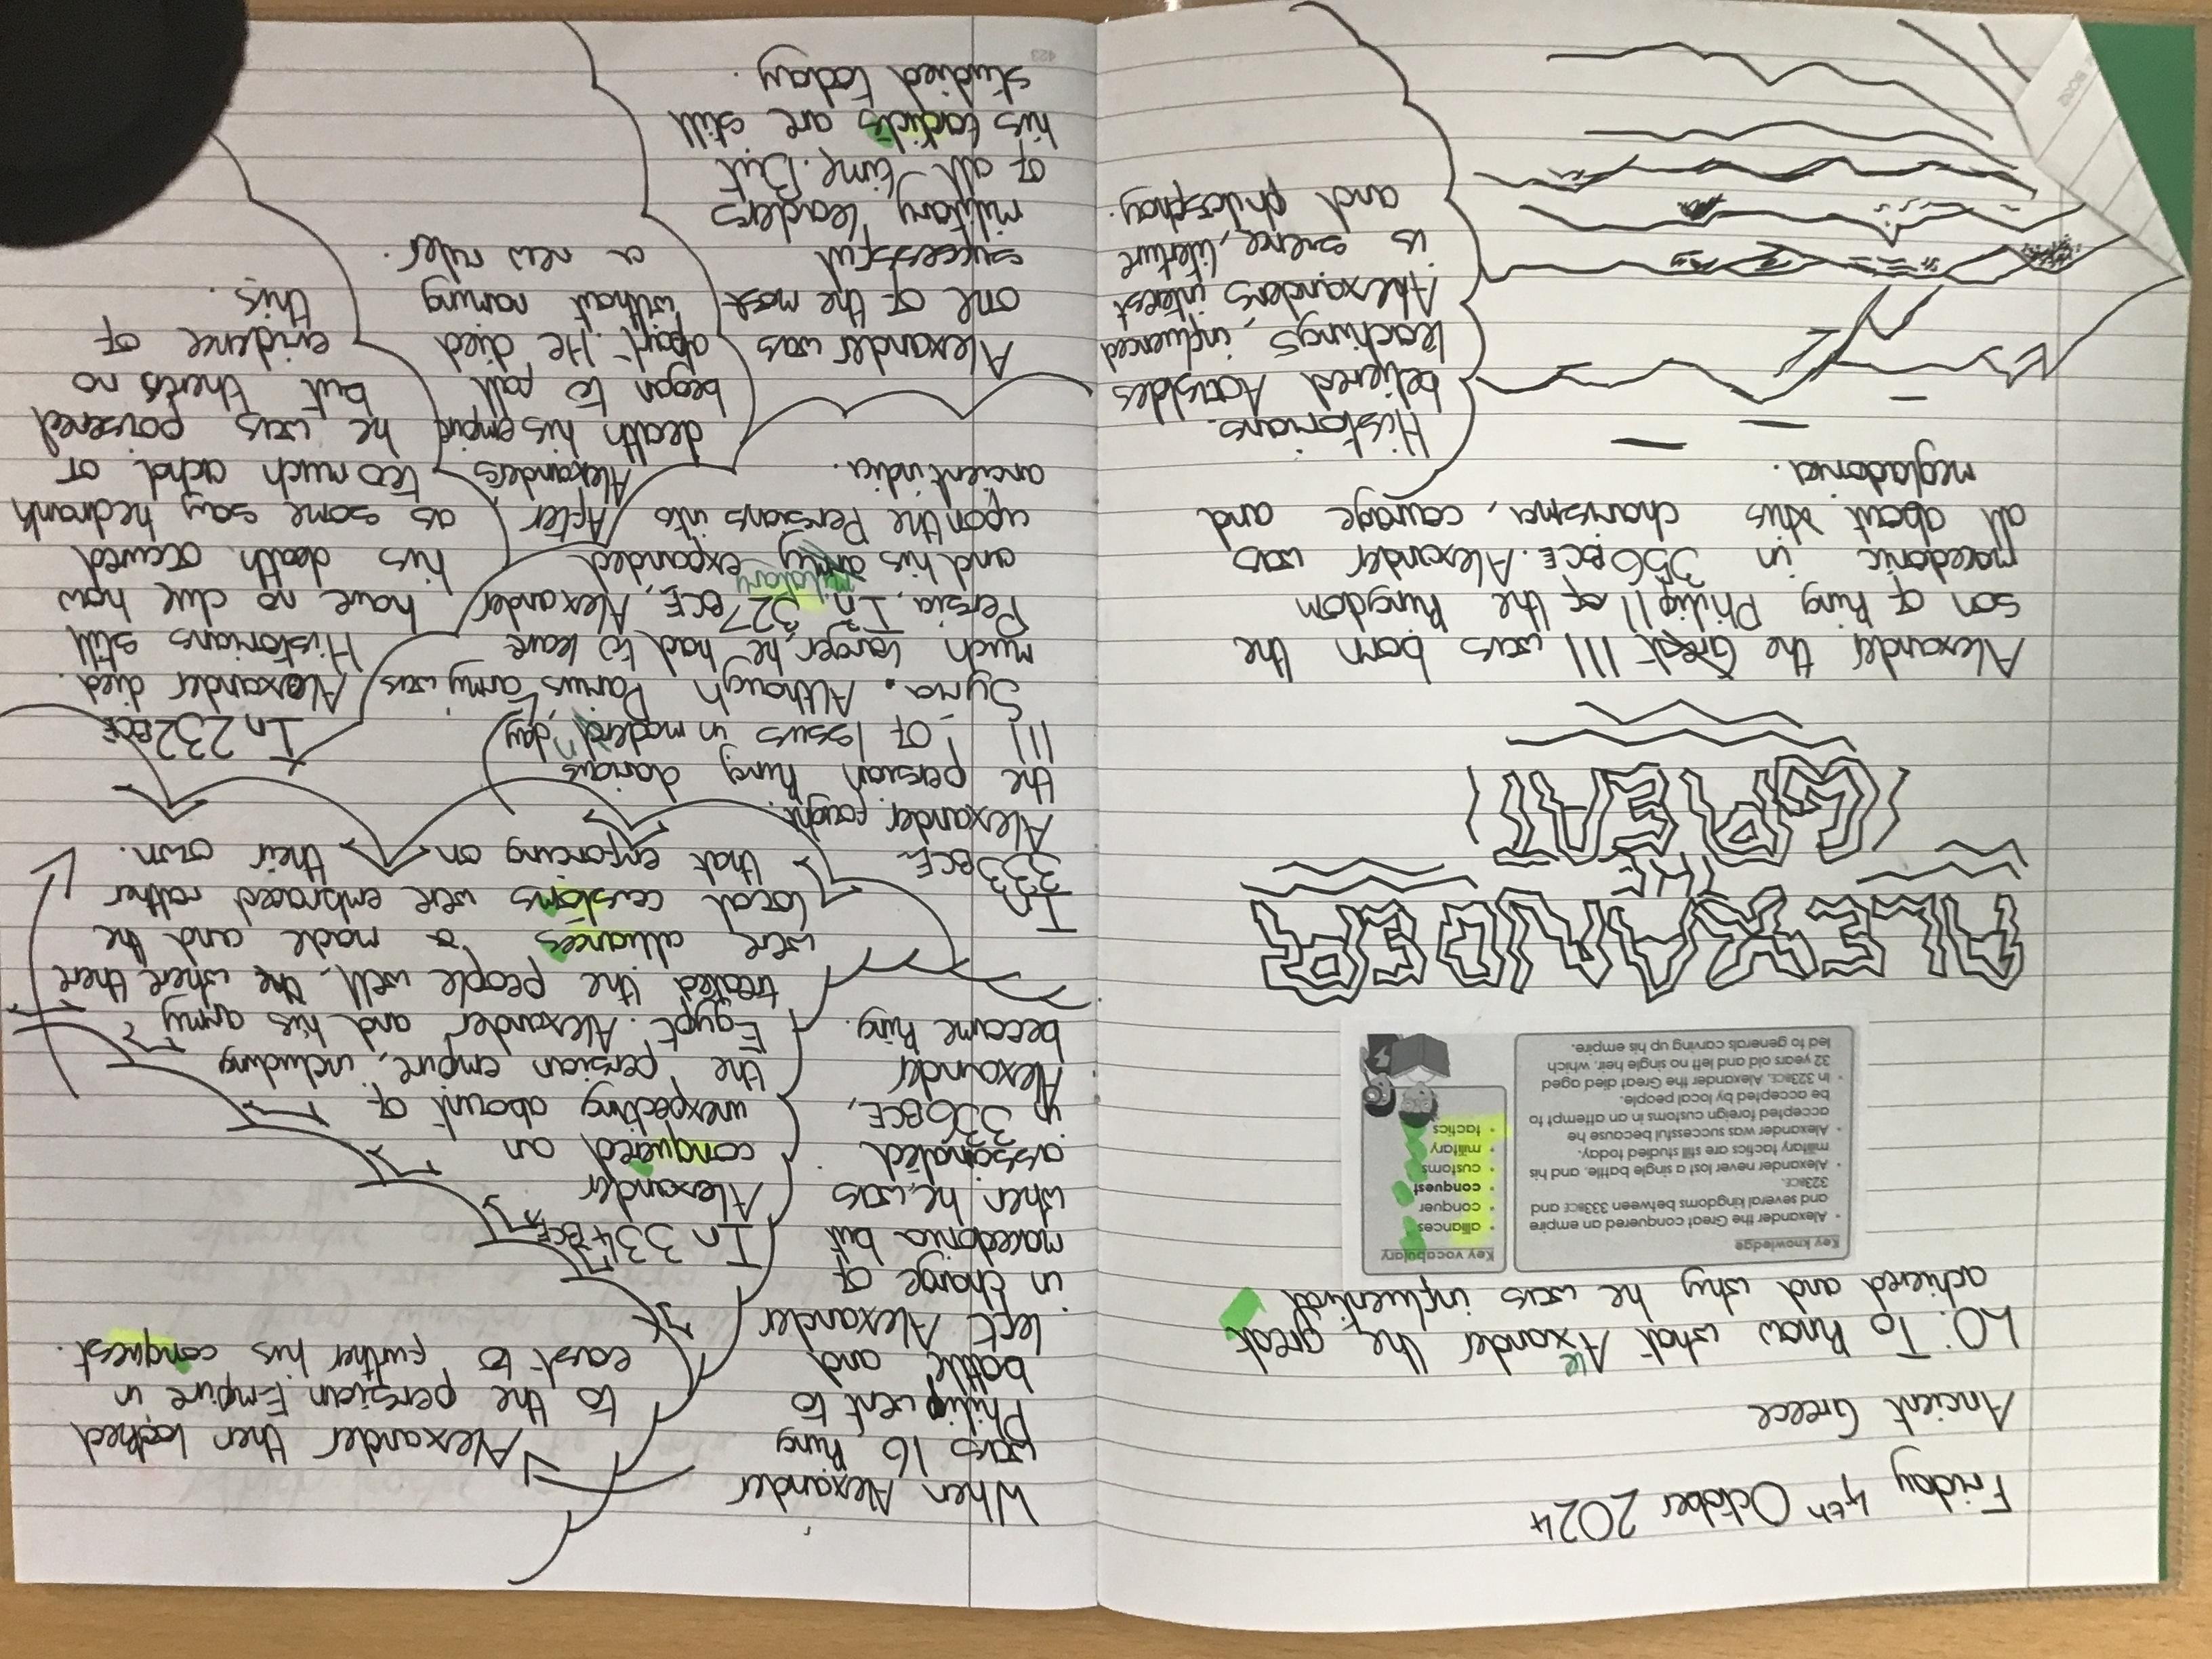 Friday 4th October 2024
Ancient Greece
LO: To know what Alexander the great
achieved and why he was influential
Key knowledge
• Alexander the Great conquered an empire
and several kingdoms between 333BCE and
323BCE.
• Alexander never lost a single battle, and his
military tactics are still studied today.
• Alexander was successful because he
accepted foreign customs in an attempt to
be accepted by local people.
• In 323BCE, Alexander the Great died aged
32 years old and left no single heir, which
led to generals carving up his empire.
Key vocabulary
• alliances
• conquer
• conquest
• customs
• military
• tactics
ALEXANDER
THE
GREAT
Alexander the Great III was born the
son of king Philip II of the kingdom
macedonic in 356BCE. Alexander was
all about this charisma, courage and
megladonia.
Historians
believed Aristles
teachings, influenced
Alexanders interest
is sience, literture
and philosphay.
When Alexander
was 16 king
Philip went to
battle and
left Alexander
in charge of
macedonia but
when he was
assanated
in 336BCE,
Alexander
became king.
Alexander then looked
to the persian Empire in
east to further his conquest.
In 334BCE
Alexander
conquered an
unexpecting abount of
the persian empire, including
Egypt. Alexander and his army
treated the people well, the where there
were alliances made and the
local customs were embraced rather
that enforcing on their own.
In
333BCE
Alexander fought
the persian king darius
III of Issus in modern day
Syria. Although Darius army was
much larger, he had to leave
Persia. In 327BCE, Alexander
military
and his army expanded
upon the Persians into
ancient india.
Alexander was
one of the most
successful
military leaders
of all time. But
his tactics are still
studied today.
After
Alexander's
death his empire
began to fall
apart. He died
without naming
a new ruler.
In 232BCE
Alexander died.
Historians still
have no clue how
his death occured
as some say he drank
too much achol or
he was poisened
but there's no
evidence of
this.
423